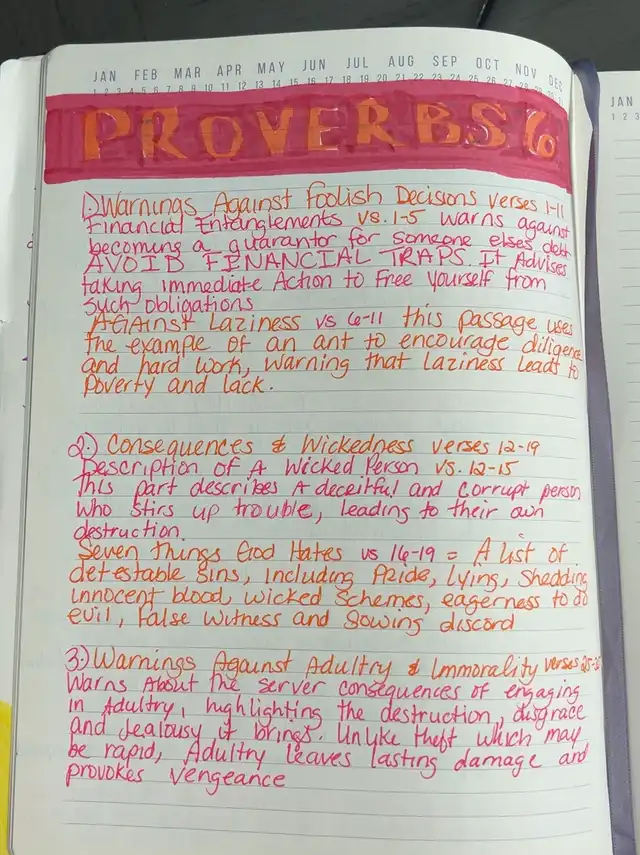 JAN FEB MAR APR MAY JUN JUL AUG SEP OCT NOV DEC
1 2 3 4 5 6 7 8 9 10 11 12 13 14 15 16 17 18 19 20 21 22 23 24 25 26 27 28 29 30 31
JAN
1 2 3
PROVERBS 6
1.) Warnings Against Foolish Decisions verses 1-11
Financial Entanglements vs. 1-5 warns against
becoming a guarantor for someone elses debt
AVOID FINANCIAL TRAPS. It Advises
taking immediate Action to Free yourself from
such obligations
AGAinst Laziness vs 6-11 this passage uses
the example of an ant to encourage diligence
and hard work, warning that laziness leads to
Poverty and lack.
2.) Consequences & Wickedness verses 12-19
Description of A Wicked Person vs. 12-15
This part describes A deceitful and corrupt person
who stirs up trouble, leading to their own
destruction.
Seven things God Hates vs 16-19 = A list of
detestable sins, including Pride, lying, Shedding
innocent blood, wicked schemes, eagerness to do
evil, False Witness and Sowing discord
3.) Warnings Against Adultry & Immorality verses
Warns About the server consequences of engaging
in Adultry, highlighting the destruction, disgrace
and Jealousy it brings. Unlike theft which may
be rapid, Adultry leaves lasting damage and
provokes vengeance